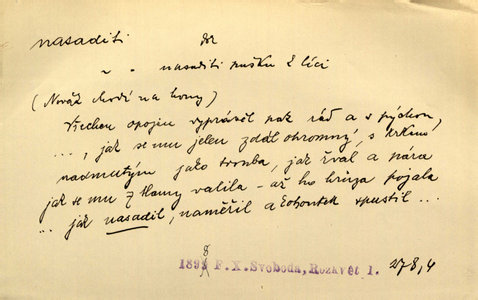 nasaditi dk
~ " nasaditi pušku k líci
(Novák chodí na hony)
Všechen opojen vyprávěl pak rád a s pýchou,
..., jak se mu jelen zdál ohromný, s krkem
nadmutým jako trouba, jak řval a pára
jak se mu z tlamy valila – až ho hrůza pojala
... jak nasadil, naměřil a kohoutek spustil ...
8
1893 F. X. Svoboda, Rozkvět 1. 278,4